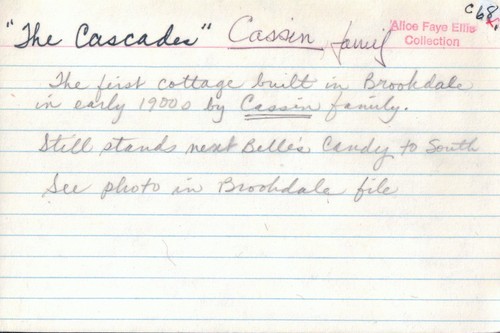 c68
"The Cascades" Cassin family
Alice Faye Ellis
Collection
The first cottage built in Brookdale
in early 1900s by Cassin family.
Still stands next Belle's Candy to South
See photo in Brookdale file